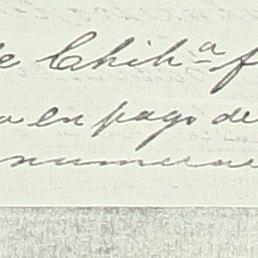 e Chih.ª f
a en pago de
numerar